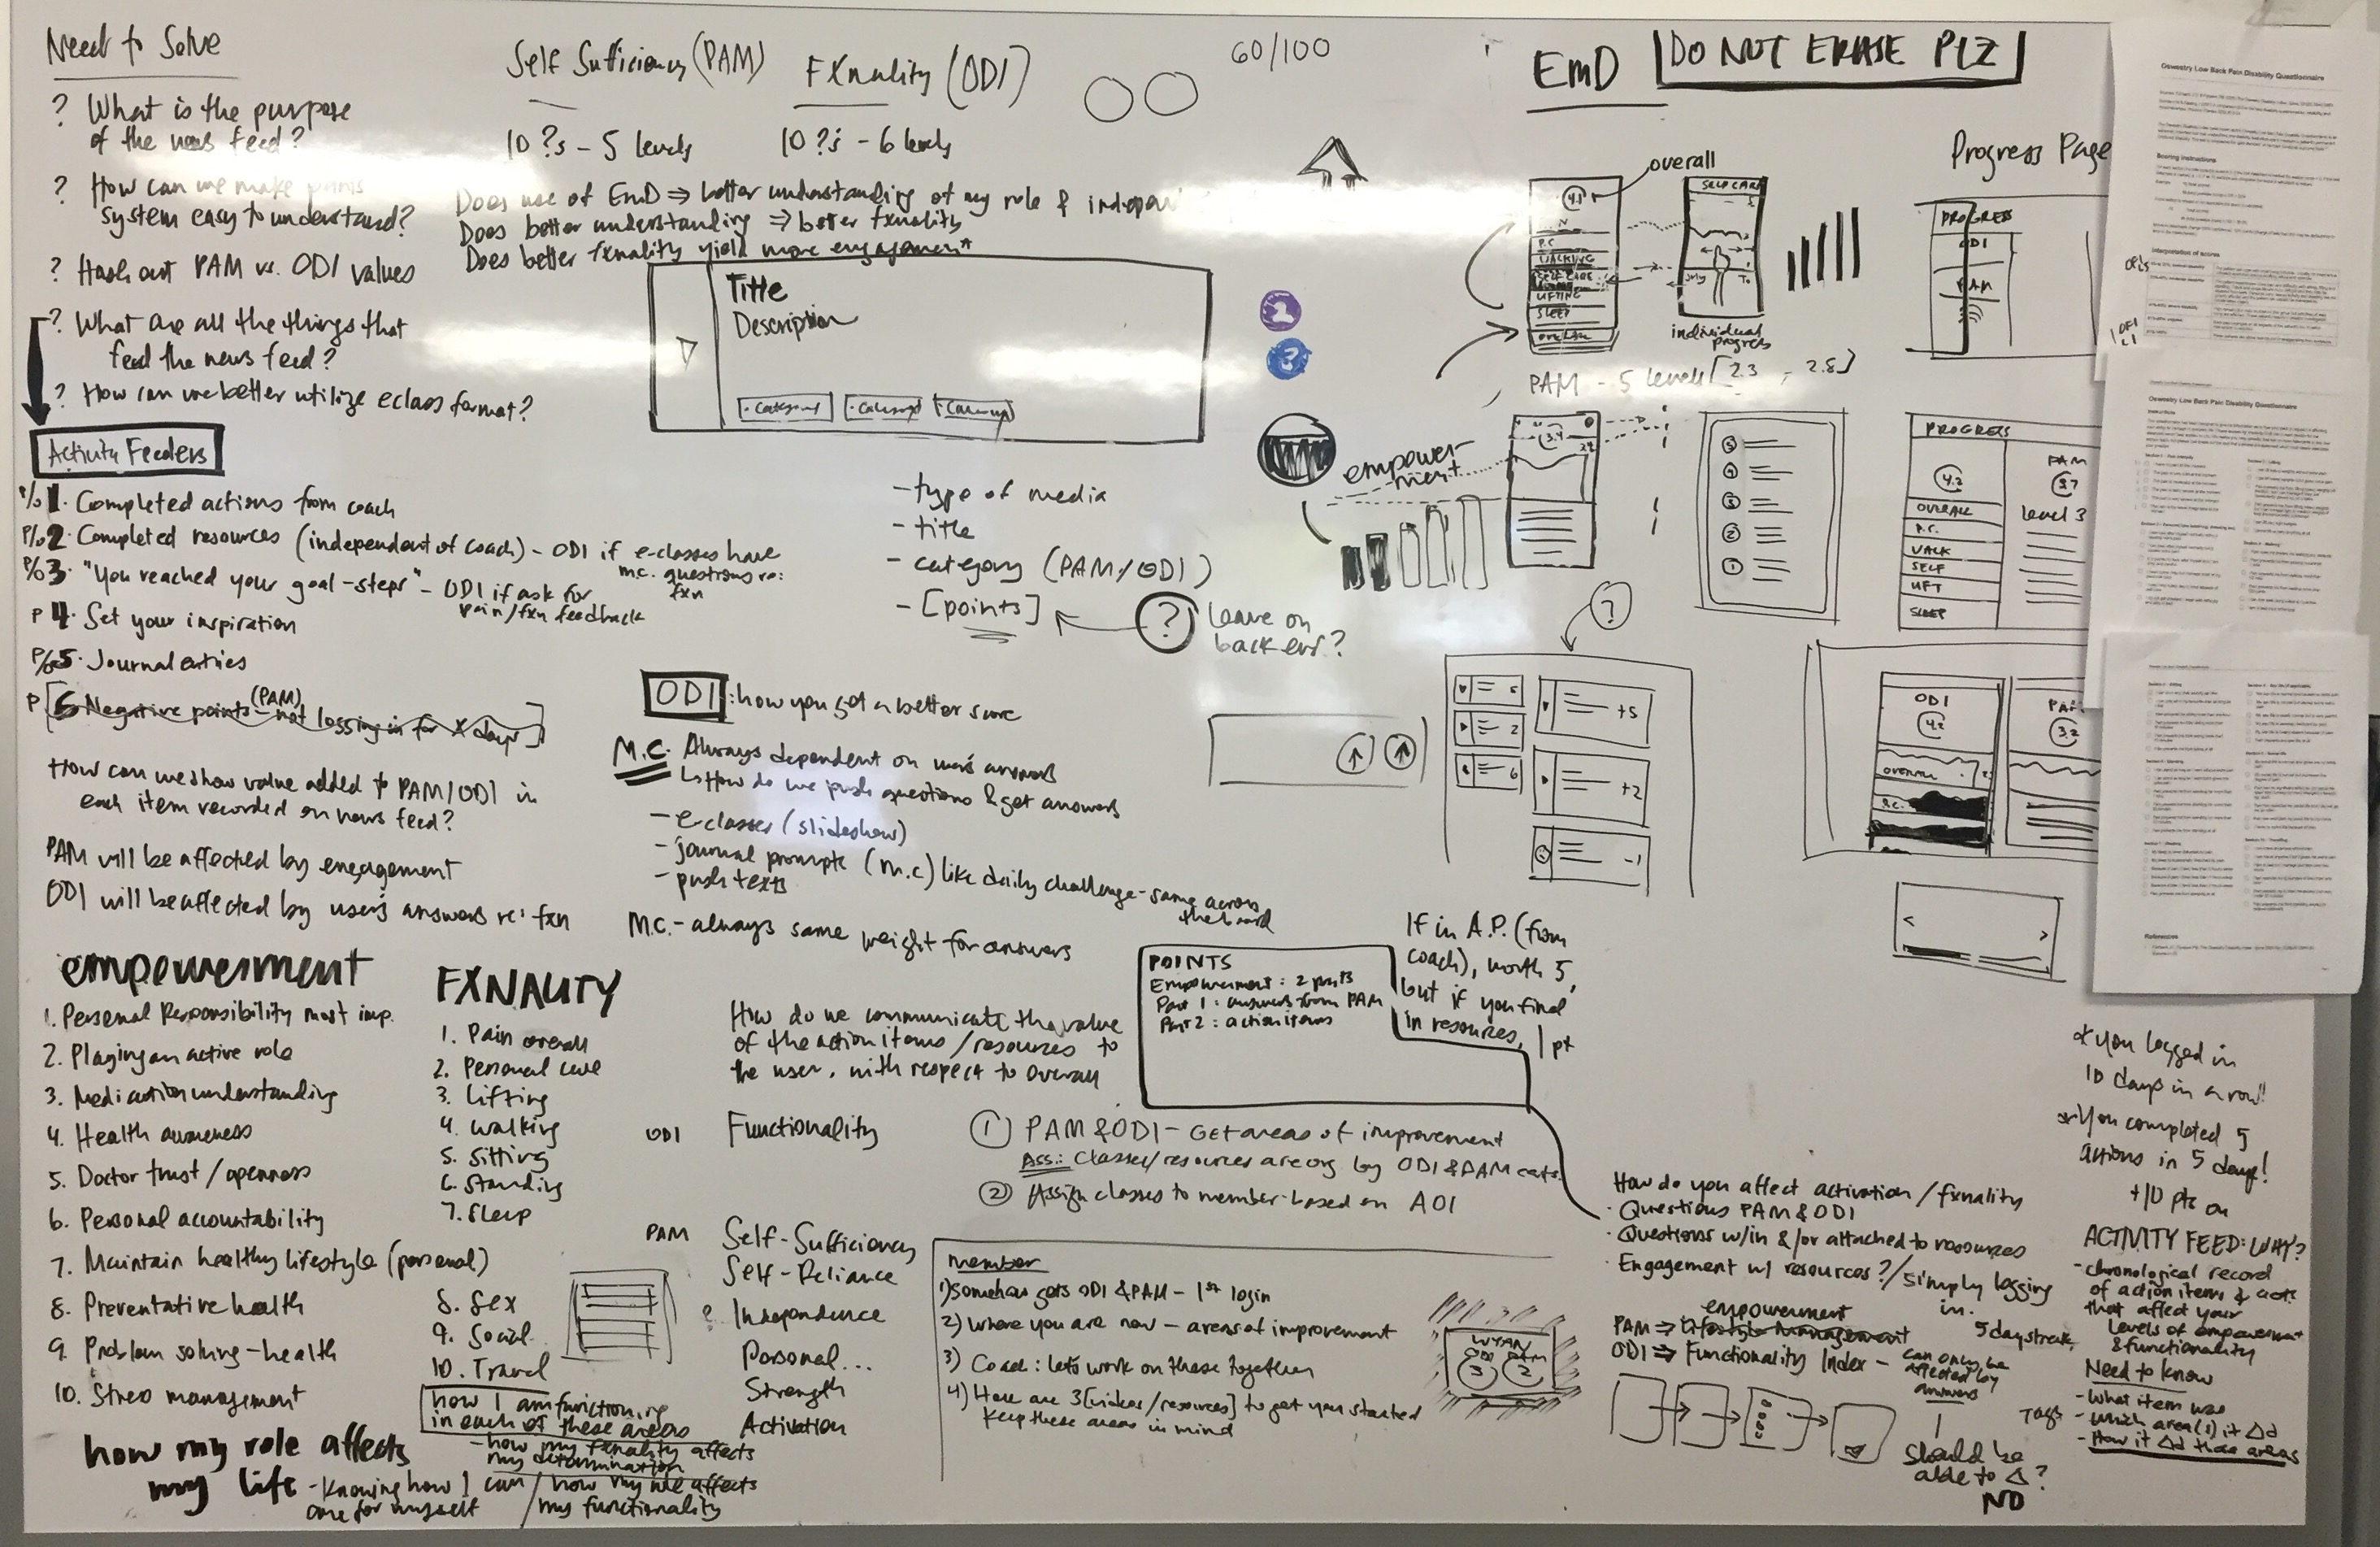 Need to Solve
? What is the purpose
of the news feed?
? How can we make points
system easy to understand?
? Hash out PAM vs. ODI values
? What are all the things that
feed the news feed?
? How can we better utilize eclass format?
Activity Feeders
P/o 1. Completed actions from coach
P/o 2. Completed resources (independent of coach) - ODI if e-classes have
m.c. questions re:
fxn
P/o 3. "You reached your goal-steps" - ODI if ask for
pain/fxn feedback
P 4. Set your inspiration
P/o 5. Journal entries
P [6. Negative points - not logging in for X days]
(PAM)
How can we show value added to PAM/ODI in
each item recorded on news feed?
PAM will be affected by engagement
ODI will be affected by user's answers re: fxn
empowerment
1. Personal Responsibility most imp.
2. Playing an active role
3. Medication understanding
4. Health awareness
5. Doctor trust/openness
6. Personal accountability
7. Maintain healthy lifestyle (personal)
8. Preventative health
9. Problem solving - health
10. Stress management
how my role affects
my life - Knowing how I can
care for myself
FXNALITY
1. Pain overall
2. Personal care
3. Lifting
4. Walking
5. Sitting
6. Standing
7. Sleep
8. Sex
9. Social
10. Travel
how I am functioning
in each of these areas
- how my fxnality affects
my determination
/ how my role affects
my functionality
Self Sufficiency (PAM)
10 ?s - 5 levels
FXnality (ODI)
10 ?s - 6 levels
60/100
Does use of EmD ⇒ better understanding of my role &
Does better understanding ⇒ better fxnality
Does better fxnality yield more engagement
Title
Description
• Category
• Category
• Category
- type of media
- title
- category (PAM/ODI)
- [points]
? leave on
back end?
ODI : how you get a better score
M.C. Always dependent on user's answers
↳ How do we push questions & get answers
- e-classes (slideshow)
- journal prompts (m.c) like daily challenge - same across
the board
- push texts
M.C. - always same weight for answers
How do we communicate the value
of the action items/resources to
the user, with respect to overall
ODI Functionality
PAM Self-Sufficiency
Self-Reliance
? Independence
Personal...
Strength
Activation
POINTS
Empowerment: 2 parts
Part 1: answers from PAM
Part 2: action items
If in A.P. (from
coach), worth 5,
but if you find
in resources, 1 pt
① PAM & ODI - Get areas of improvement
Ass.: Classes/resources are org by ODI & PAM cats.
② Assign classes to member based on AOI
member
1) Somehow gets ODI & PAM - 1st login
2) Where you are now - areas of improvement
3) Coach: let's work on these together
4) Here are 3 [videos/resources] to get you started
Keep these areas in mind
WYAN
ODI PAM
3 2
EmD
DO NOT ERASE PLZ
overall
4.1
P.C
WALKING
SELF CARE
LIFTING
SLEEP
OVERALL
SELF CARE
July
To
individual
progress
PAM - 5 levels [2.3 - 2.8]
empower-
ment
3.4
5
4
3
2
1
?
5
2
6
+5
+2
-1
Progress Page
PROGRESS
ODI
PAM
PROGRESS
4.2
OVERALL
P.C.
WALK
SELF
LIFT
SLEEP
PAM
3.7
Level 3
ODI
4.2
OVERALL
P.C.
3.2
< >
Oswestry Low Back Pain Disability Questionnaire
Scoring instructions
Interpretation of scores
Oswestry Low Back Pain Disability Questionnaire
References
* You logged in
10 days in a row!
* You completed 5
actions in 5 days!
+10 pts on
How do you affect activation/fxnality
• Questions PAM & ODI
• Questions w/in &/or attached to resources
• Engagement w/ resources?/simply logging
in.
5 day streak
empowerment
PAM ⇒ Lifestyle Management
ODI ⇒ Functionality Index - can only be
affected by
answers
Should be
able to Δ?
NO
ACTIVITY FEED: WHY?
- chronological record
of action items & acts
that affect your
levels of empowerment
& functionality
Need to know
- What item was
Tags - which area(s) it Δd
- How it Δd those areas